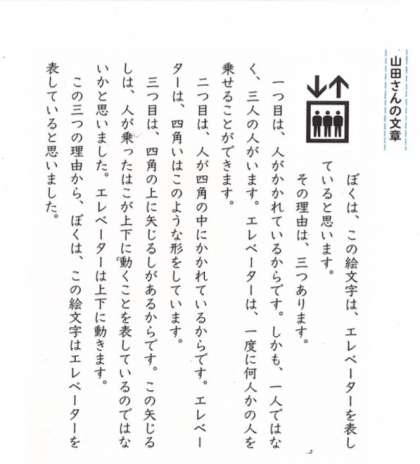 山田さんの文章
ぼくは、この絵文字は、エレベーターを表し
ていると思います。
その理由は、三つあります。
一つ目は、人がかかれているからです。しかも、一人ではな
く、三人の人がいます。エレベーターは、一度に何人かの人を
乗せることができます。
二つ目は、人が四角の中にかかれているからです。エレベー
ターは、四角いはこのような形をしています。
三つ目は、四角の上に矢じるしがあるからです。この矢じる
しは、人が乗ったはこが上下に動くことを表しているのではな
いかと思いました。エレベーターは上下に動きます。
この三つの理由から、ぼくは、この絵文字はエレベーターを
表していると思いました。